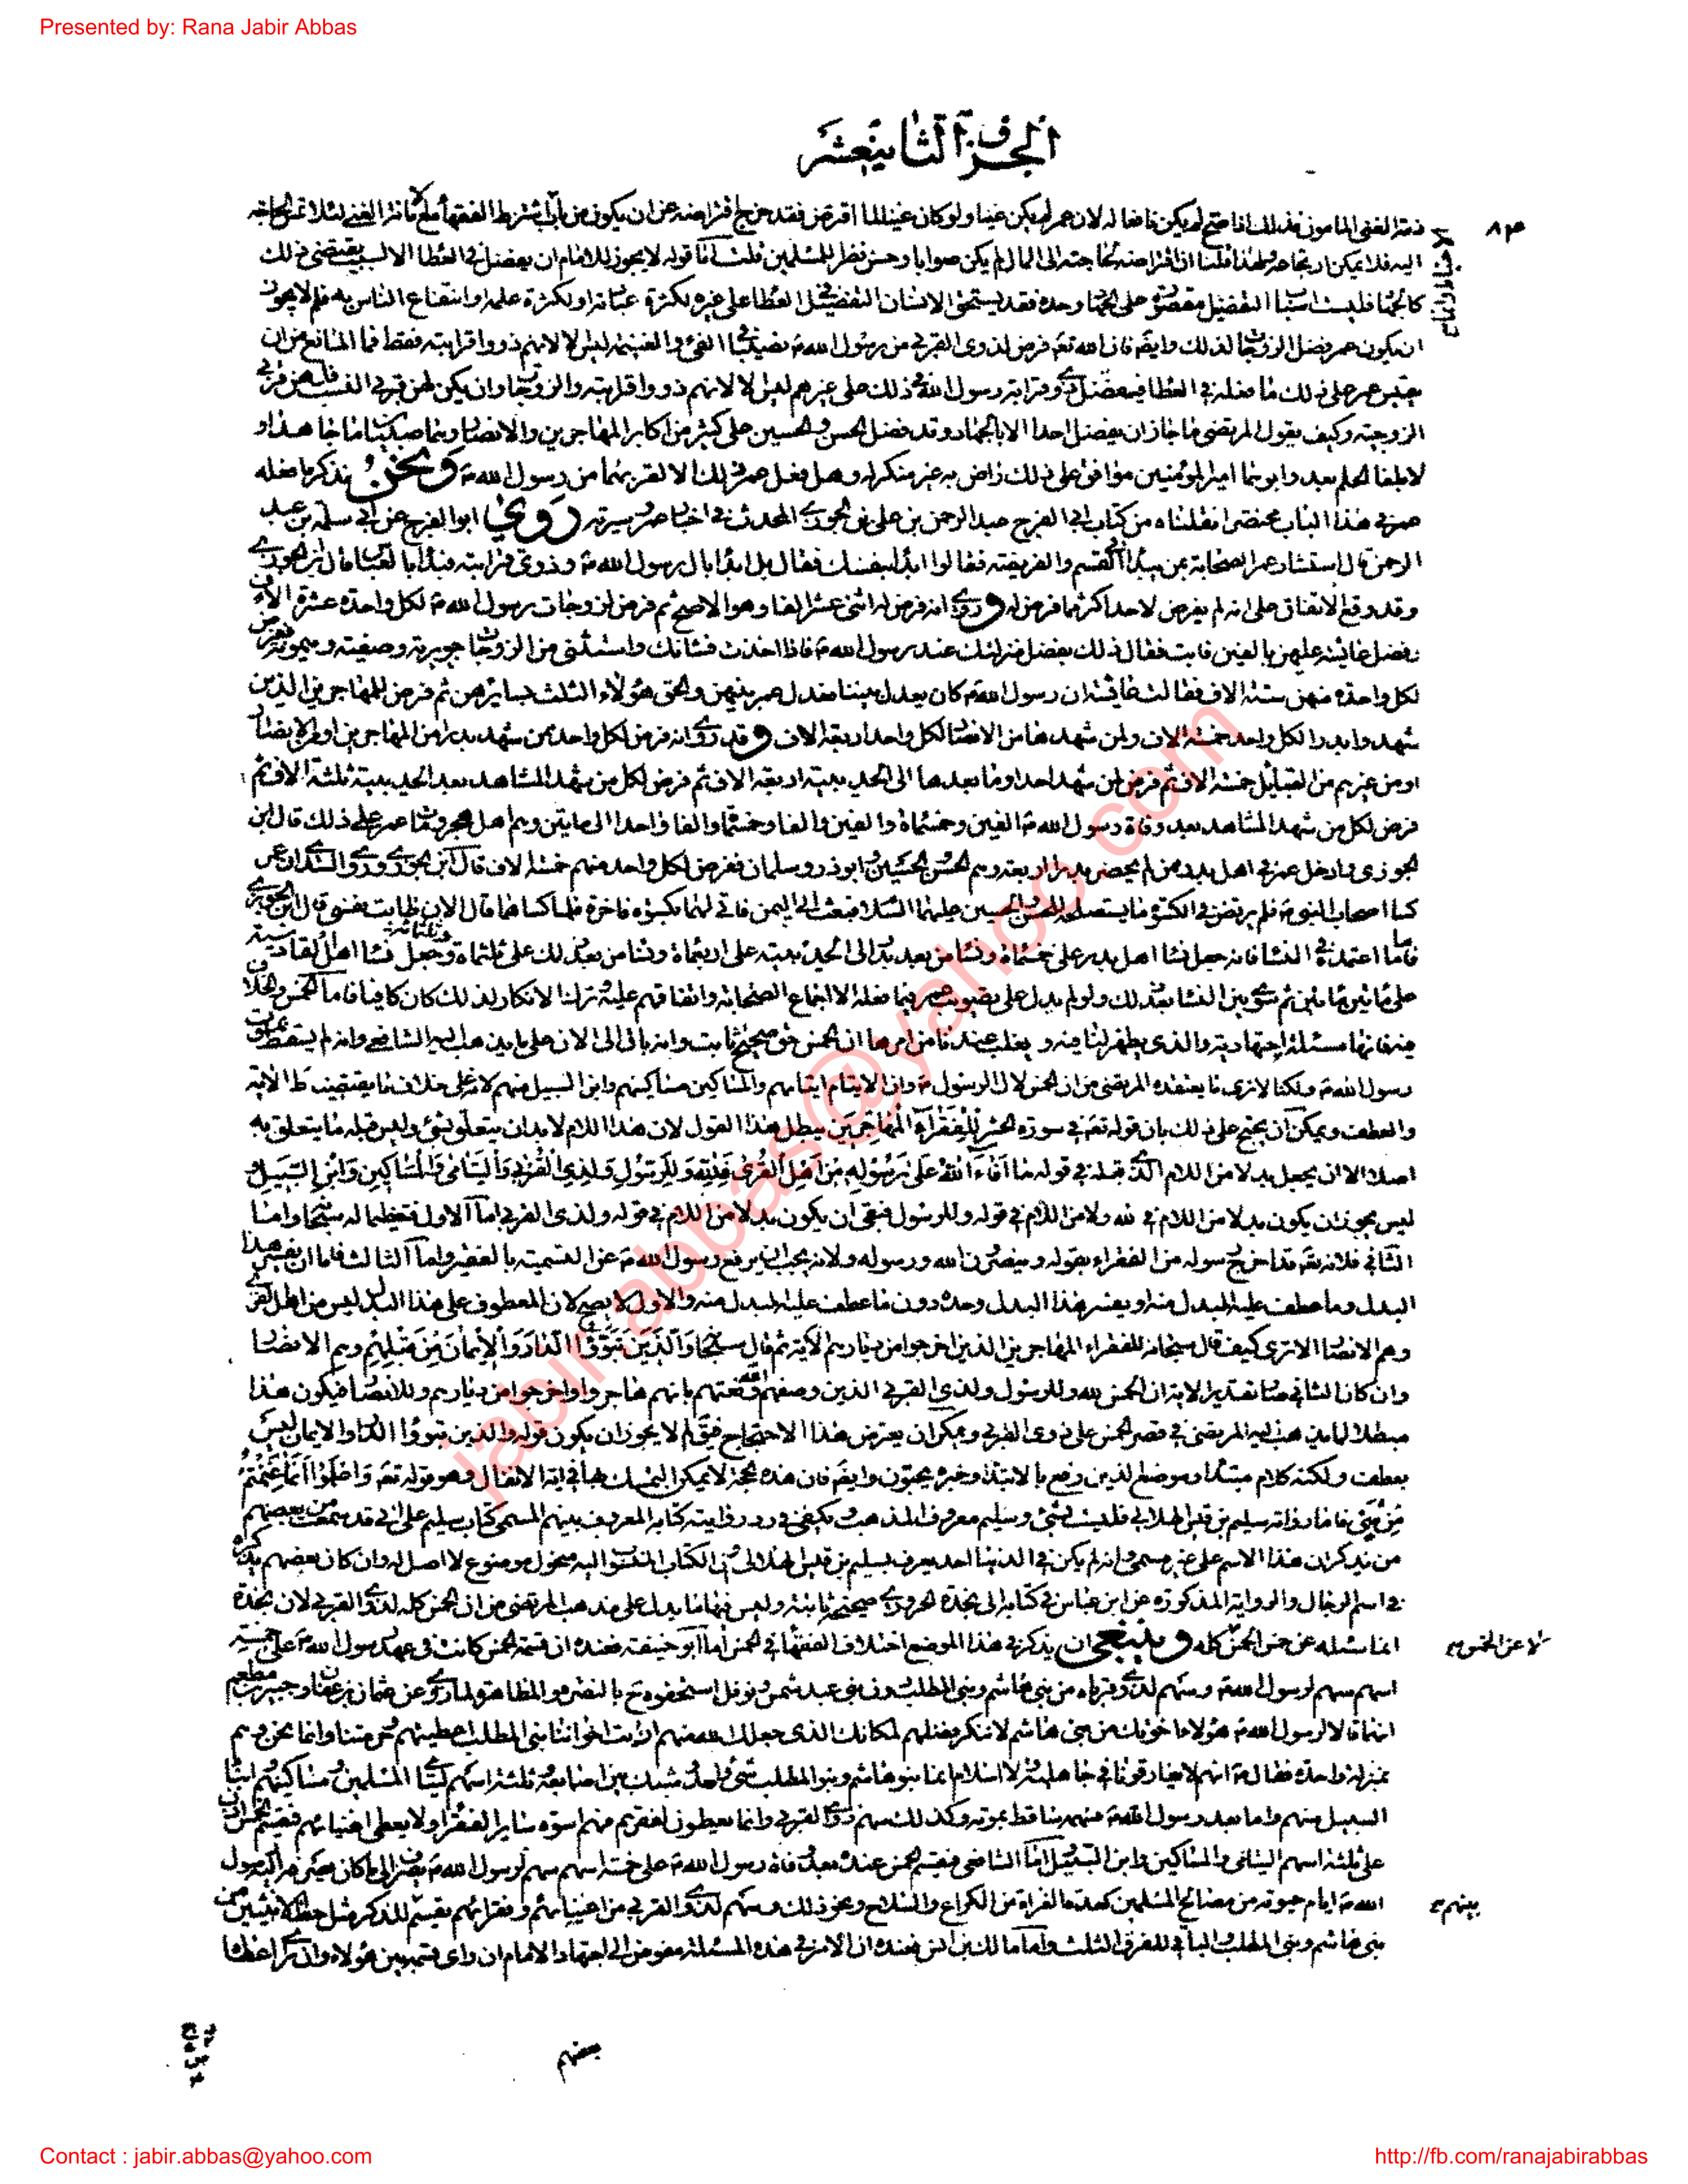 Presented by: Rana Jabir Abbas
الجزء الثاني عشر
٨٣
اليه فلا يمكن ارتجاعه ولهذا قلنا ان اقتراضه لحاجته الى المال لم يكن صوابا وحسن نظر للمسلمين قلت اما قوله لا يجوز للامام ان يفضل في العطا الا لسبب يقتضي ذلك
كالجهاد فليست اسباب التفضيل مقصورة على الجهاد وحده فقد يستحق الانسان التفضيل في العطا على غيره لكثرة عبادته او لكثرة علمه او انتفاع الناس به فلم لا يجوز
ان يكون عمر فضل الزوجات لذلك وايضا فان الله تعالى فرض لذوي القربى من رسول الله ص نصيبا في الفئ والغنيمة ليس الا لانهم ذووا قرابته فقط فما المانع من ان
يقيس عمر على ذلك ما فعله في العطا فيفضل ذوي قرابة رسول الله ص في ذلك على غيرهم ليس الا لانهم ذووا قرابته والزوجات وان لم يكن لهن قربى النسب فلهن قربى
الزوجية وكيف يقول المرتضى ما جاز ان يفضل احدا الا بالجهاد وقد فضل الحسن والحسين على كثير من اكابر المهاجرين والانصار وهما صبيان ما جاهدا و
لا بلغا الحلم بعد وابوهما امير المؤمنين موافق على ذلك راض به غير منكر له وهل فعل عمر ذلك الا لقربهما من رسول الله ص ونحن نذكر ما فعله
عمر في هذا الباب مختصرا نقلناه من كتاب ابي الفرج عبد الرحمن بن علي بن الجوزي المحدث في اخبار عمر وسيرته روى ابو الفرج عن ابي سلمة بن عبد
الرحمن قال استشار عمر الصحابة بمن يبدأ في القسم والفريضة فقالوا ابدأ بنفسك فقال بل ابدأ بال رسول الله ص وذوي قرابته فبدأ بالعباس قال ابن الجوزي
وقد وقع الاتفاق على انه لم يفرض لاحد اكثر مما فرض له وروي انه فرض له اثني عشر الفا وهو الاصح ثم فرض لزوجات رسول الله ص لكل واحدة عشرة الاف
وفضل عائشة عليهن بالفين فابت فقال ذلك بفضل منزلتك عند رسول الله ص فاذا اخذت فشانك واستثنى من الزوجات جويرية وصفية وميمونة ففرض
لكل واحدة منهن ستة الاف فقالت عائشة ان رسول الله ص كان يعدل بيننا فعدل عمر بينهن والحق هؤلاء الثلث بسائرهن ثم فرض للمهاجرين الذين
شهدوا بدرا لكل واحد خمسة الاف ولمن شهدها من الانصار لكل واحد اربعة الاف وقد روي انه فرض لكل واحد ممن شهد بدرا من المهاجرين او من الانصار
او من غيرهم من القبائل خمسة الاف ثم فرض لمن شهد احدا وما بعدها الى الحديبية اربعة الاف ثم فرض لكل من شهد المشاهد بعد الحديبية ثلثة الاف ثم
فرض لكل من شهد المشاهد بعد وفاة رسول الله ص الفين وخمسماة والفين والفا وخمسماة والفا واحدا الى مايتين وهم اهل هجر ومات عمر على ذلك قال ابن
الجوزي وادخل عمر في اهل بدر ممن لم يحضر بدرا اربعة وهم الحسن والحسين وابوذر وسلمان ففرض لكل واحد منهم خمسة الاف قال ابن الجوزي وروى السدي ان عمر
كسا اصحاب النبي ص فلم يرتض في الكسوة ما يستصلحه للحسن والحسين عليهما السلام فبعث الى اليمن فاتى لهما بكسوة فاخرة فلما كساهما قال الان طابت نفسي قال ابن الجوزي
فاما ما اعتمده في النساء فانه جعل نساء اهل بدر على خمسماة ونساء من بعد بدر الى الحديبية على اربعماة ونساء من بعد ذلك على ثلثماة وجعل نساء اهل القادسية
على مائتين مائتين ثم سوى بين النساء بعد ذلك ولو لم يدل على تصويب عمر فيما فعله الا اجماع الصحابة واتفاقهم عليه وترك الانكار لذلك كان كافيا فاما الخمس والخلاف
فيه فانها مسئلة اجتهادية والذي يظهر لنا فيه ويغلب عندنا من امرها ان الخمس حق صحيح ثابت وانه باق الى الان على ما يذهب اليه الشافعي وانه لم يسقط بموت
رسول الله ص ولكنا لا نرى ما يعتقده المرتضى من ان الخمس لال الرسول ص وان الايتام ايتامهم والمساكين مساكينهم وابن السبيل منهم لانه على خلاف ما يقتضيه ظاهر الاية
والعطف ويمكن ان يحتج على ذلك بان قوله تعالى في سورة الحشر للفقراء المهاجرين يبطل هذا القول لان هذا اللام لا بد ان يتعلق بشئ وليس قبله ما يتعلق به
اصلا الا ان يجعل بدلا من اللام التي قبله في قوله ما افاء الله على رسوله من اهل القرى فلله وللرسول ولذي القربى واليتامى والمساكين وابن السبيل و
ليس يجوز ان يكون بدلا من اللام في لله ولا من اللام في قوله وللرسول فبقي ان يكون بدلا من اللام في قوله ولذي القربى اما الاول فتعظيما له سبحانه واما
الثاني فلانه تعالى قد اخرج رسوله من الفقراء بقوله وينصرون الله ورسوله ولانه يجب ان يرفع رسول الله ص عن التسمية بالفقير واما الثالث فاما ان يفسر هذا
البدل وما عطف عليه المبدل منه او يفسر هذا البدل وحده دون ما عطف عليه المبدل منه والاول لا يصح لان المعطوف على هذا البدل ليس من اهل القرى
وهم الانصار الا ترى كيف قال سبحانه للفقراء المهاجرين الذين اخرجوا من ديارهم الاية ثم قال سبحانه والذين تبوؤا الدار والايمان من قبلهم وهم الانصار
وان كان الثاني صار تقدير الاية ان الخمس لله وللرسول ولذي القربى الذين وصفهم الله ونعتهم بانهم هاجروا واخرجوا من ديارهم وللانصار فيكون هذا
مبطلا لما يذهب اليه المرتضى في قصر الخمس على ذوي القربى ويمكن ان يعترض هذا الاحتجاج فيقال لم لا يجوز ان يكون قوله والذين تبوؤا الدار والايمان ليس
بعطف ولكنه كلام مبتدأ وموضع الذين رفع بالابتداء وخبره يحبون وايضا فان هذه الحجة لا يمكن التمسك بها في اية الانفال وهو قوله تعالى واعلموا انما غنمتم
من شئ فاما رواية سليم بن قيس الهلالي فليست بشئ وسليم معروف المذهب ويكفي في رد روايته كتابه المعروف بينهم المسمى كتاب سليم على اني قد سمعت من بعضهم
من يذكر ان هذا الاسم على غير مسمى وانه لم يكن في الدنيا احد يعرف بسليم بن قيس الهلالي وان الكتاب المنسوب اليه منحول موضوع لا اصل له وان كان بعضهم يذكره
في اسم الرجال والرواية المذكورة عن ابن عباس في كتابه الى نجدة الحروري صحيحة ثابتة وليس فيها ما يدل على مذهب المرتضى من ان الخمس كله لذوي القربى لان نجدة
انما سئله عن خمس الخمس كله وينبغي ان يذكر في هذا الموضع اختلاف الفقهاء في الخمس اما ابو حنيفة فعنده ان قسمة الخمس كانت في عهد رسول الله ص على خمسة
لا عن الخمس
اسهم سهم لرسول الله ص وسهم لذوي قرباه من بني هاشم وبني المطلب دون بني عبد شمس ونوفل استحقوه ح بالنصرة والمظاهرة لما روي عن عثمان بن عفان وجبير بن مطعم
انهما قالا لرسول الله ص هؤلاء اخوتك من بني هاشم لا ننكر فضلهم لمكانك الذي جعلك الله منهم ارايت اخواننا بني المطلب اعطيتهم وحرمتنا وانما نحن وهم
بمنزلة واحدة فقال ص انهم لم يفارقونا في جاهلية ولا اسلام انما بنو هاشم وبنو المطلب شئ واحد وشبك بين اصابعه وثلثة اسهم ليتامى المسلمين ومساكينهم وابناء
السبيل منهم واما بعد رسول الله ص فسهمه ساقط بموته وكذلك سهم ذوي القربى وانما يعطون لفقرهم فهم اسوة سائر الفقراء ولا يعطى اغنياؤهم فيقسم الخمس اذن
على ثلثة اسهم اليتامى والمساكين وابن السبيل واما الشافعي فيقسم الخمس عنده بعد وفاة رسول الله ص على خمسة اسهم سهم لرسول الله ص يصرف الى ما كان يصرفه اليه رسول
الله ص ايام حيوته من مصالح المسلمين كعدة الغزاة من الكراع والسلاح ونحو ذلك وسهم لذوي القربى من اغنيائهم وفقرائهم يقسم للذكر مثل حظ الانثيين من
بينهم
بني هاشم وبني المطلب والباقي للفرق الثلث واما مالك بن انس فعنده ان الامر في هذه المسئلة مفوض الى اجتهاد الامام ان راى قسمه بين هؤلاء وان راى اعطاه
بعضهم
jabir.abbas@yahoo.com
Contact : jabir.abbas@yahoo.com
http://fb.com/ranajabirabbas